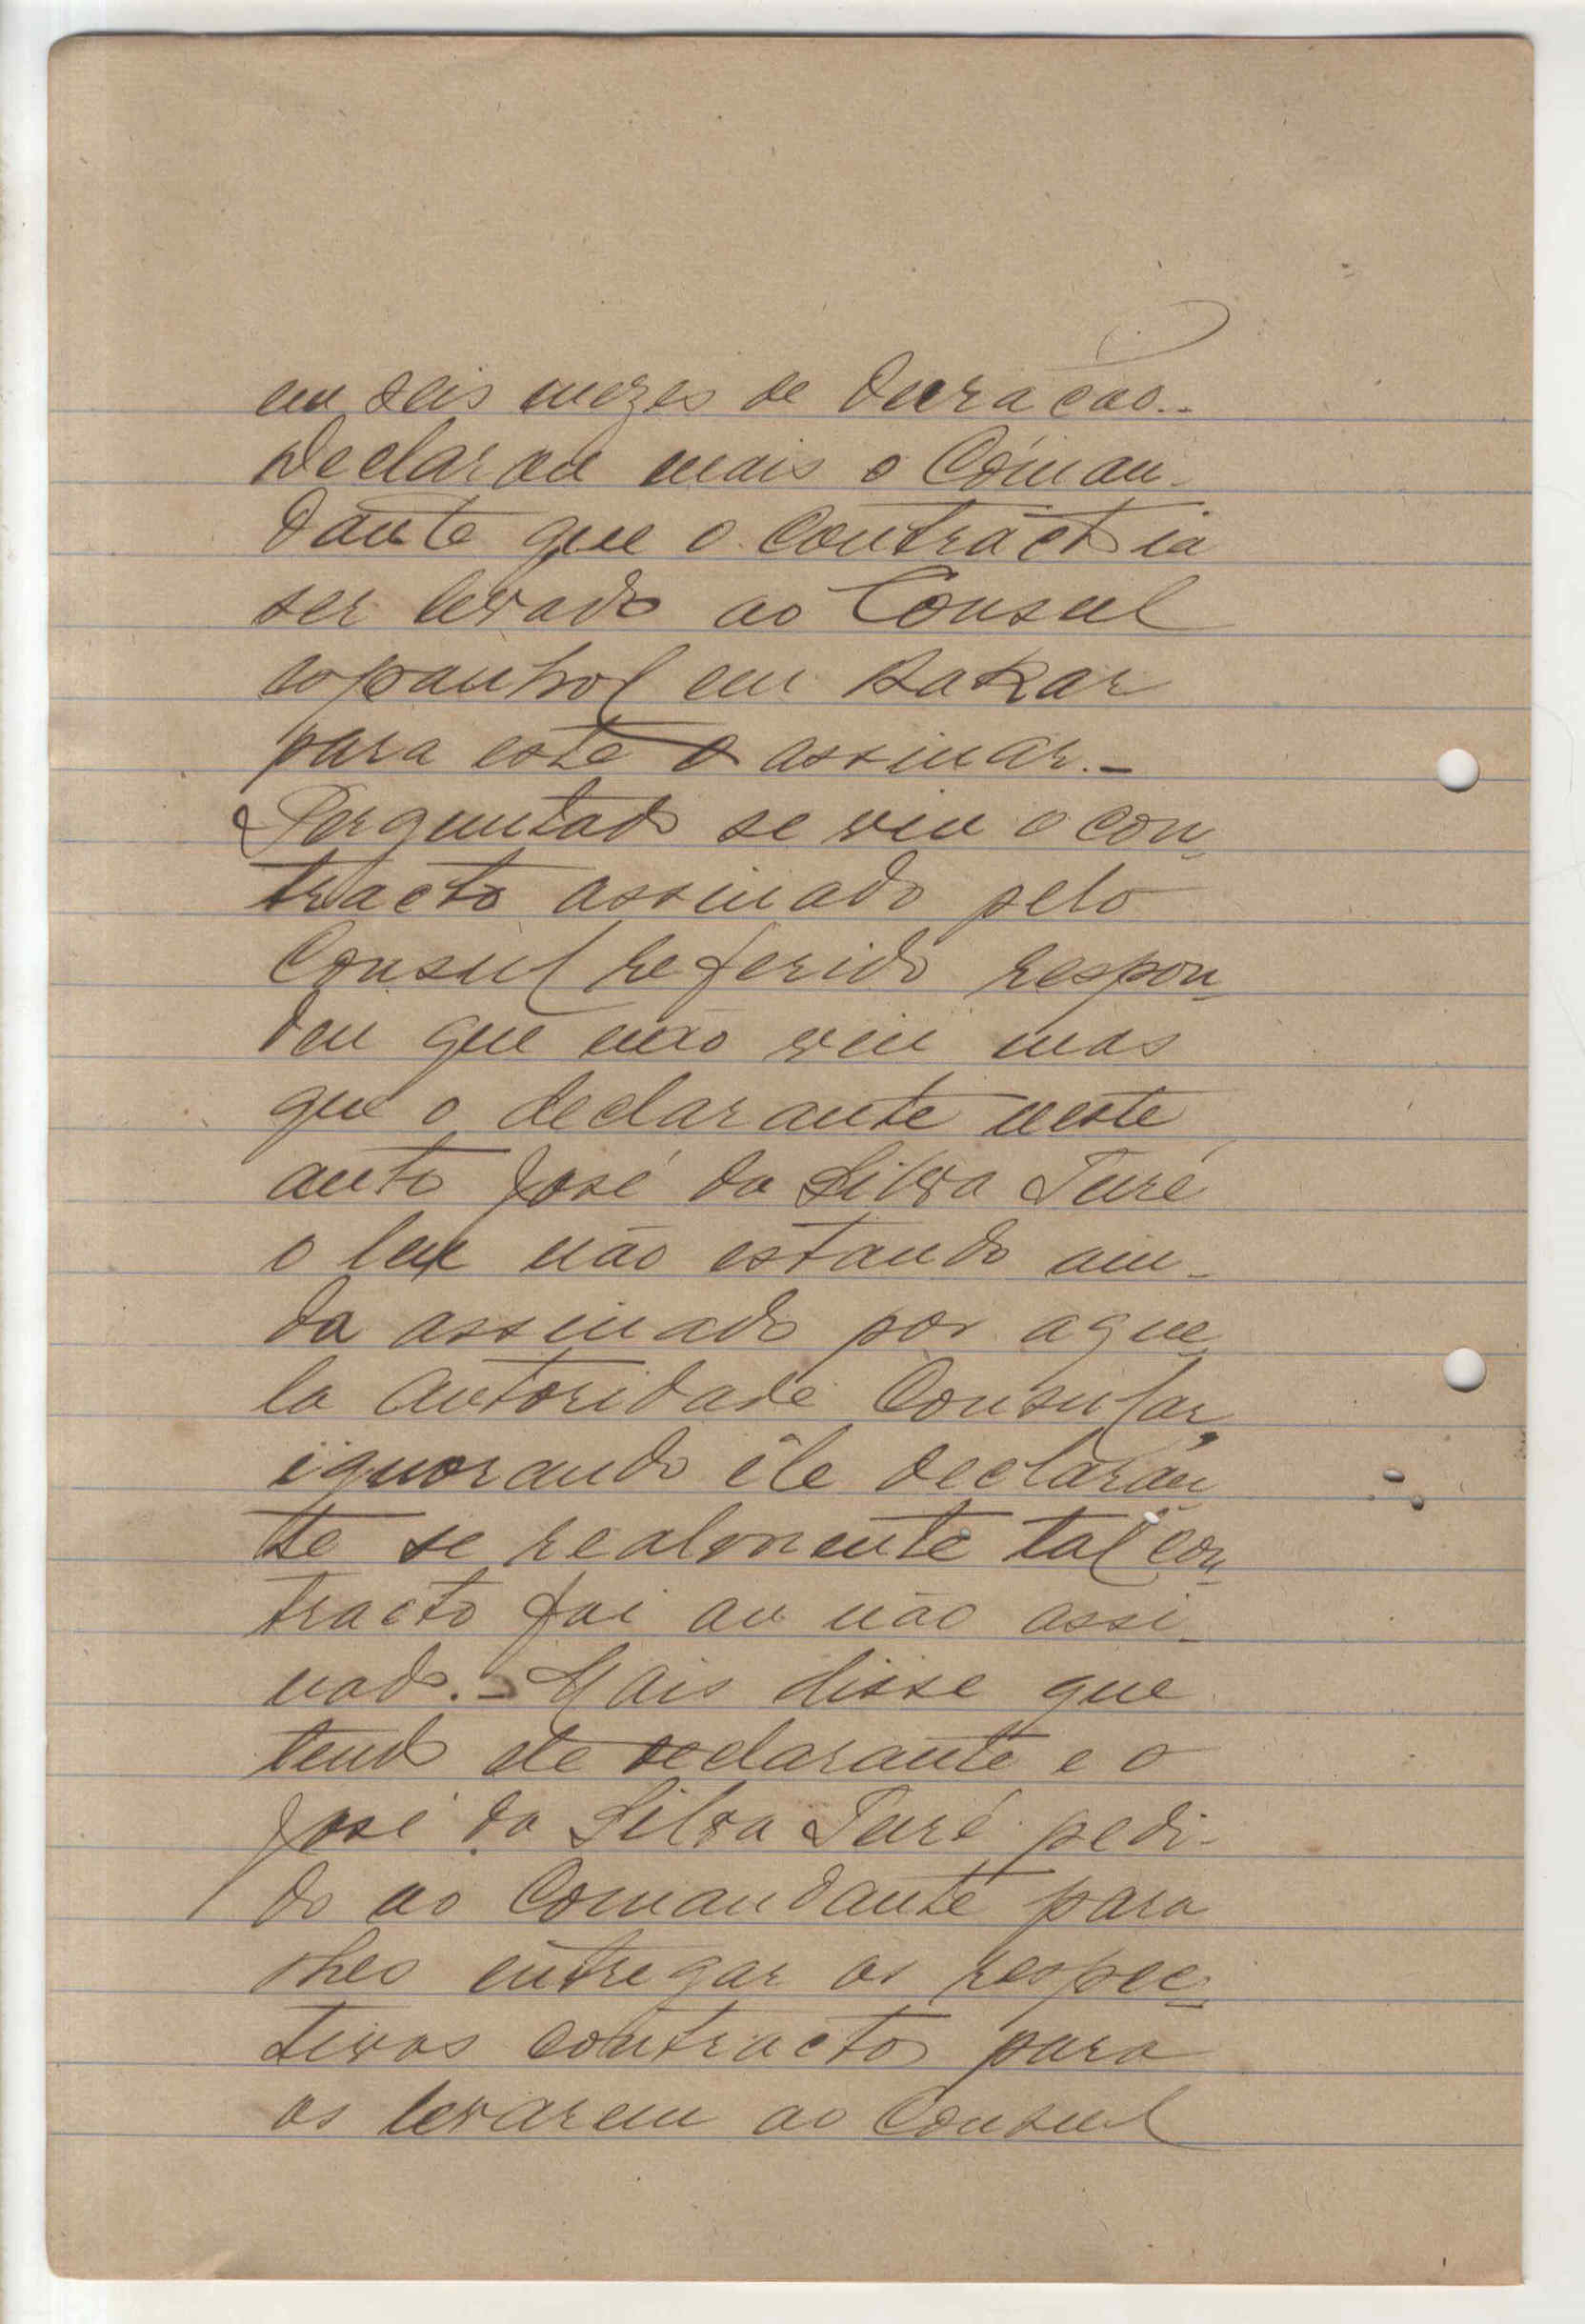 ou seis mezes de duração..
Declarou mais o Coman-
dante que o Contracto ia
ser levado ao Consul
espanhol em Dakar
para este o assinar.-
Perguntado se viu o con-
tracto assinado pelo
Consul referido respon-
deu que não viu mas
que o declarante neste
auto José da Silva Turé
o leu não estando ain-
da assinado por aque-
la autoridade Consular,
ignorando êle declaran-
te se realmente tal con-
tracto foi ou não assi-
nado.- Mais disse que
tendo ele declarante e o
José da Silva Turé pedi-
do ao Comandante para
lhes entregar os respec-
tivos contractos para
os levarem ao Consul